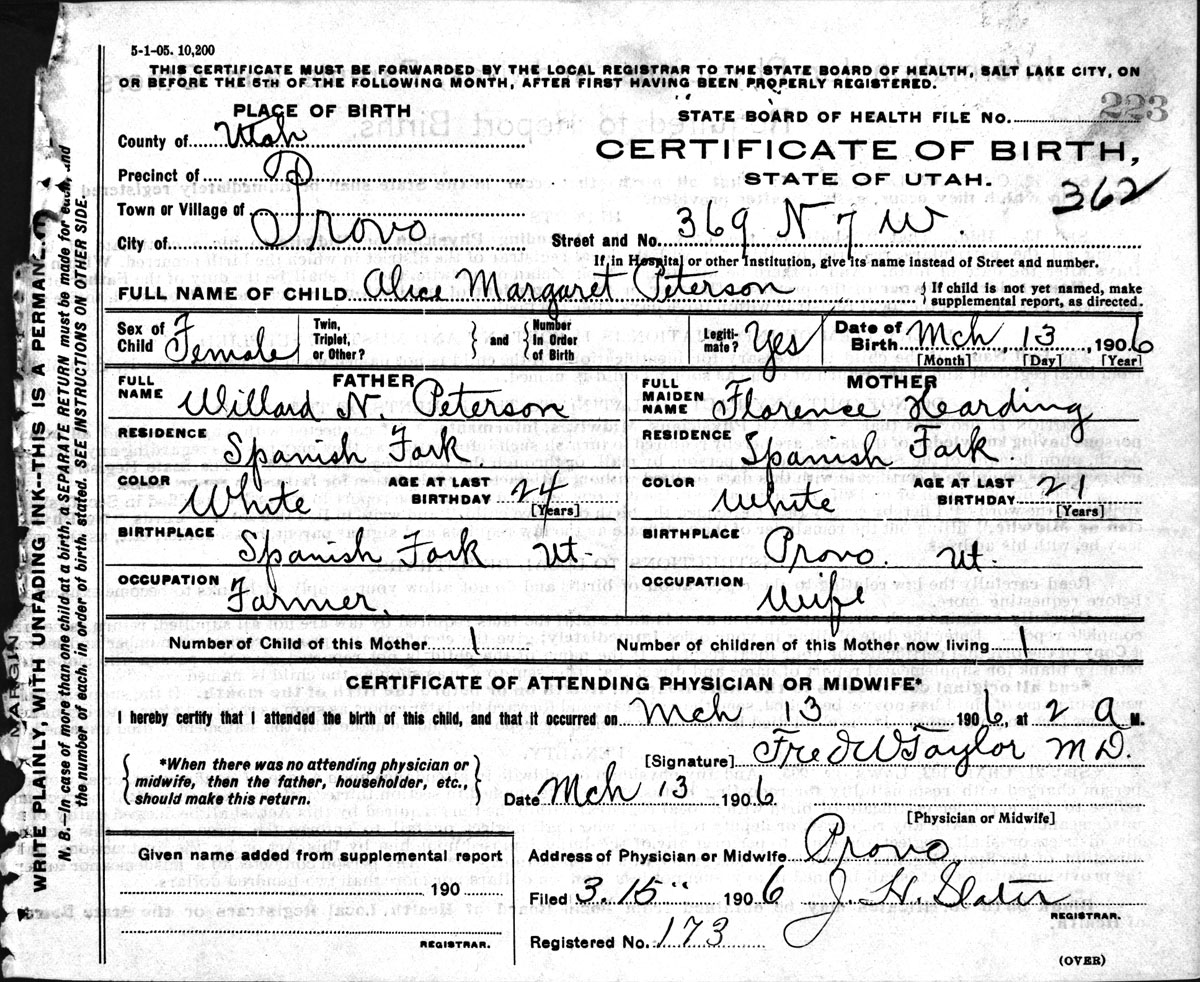 5-1-05. 10,200
THIS CERTIFICATE MUST BE FORWARDED BY THE LOCAL REGISTRAR TO THE STATE BOARD OF HEALTH, SALT LAKE CITY, ON
OR BEFORE THE 5TH OF THE FOLLOWING MONTH, AFTER FIRST HAVING BEEN PROPERLY REGISTERED.
PLACE OF BIRTH
STATE BOARD OF HEALTH FILE NO. 223
County of Utah
CERTIFICATE OF BIRTH,
Precinct of P
STATE OF UTAH.
362
Town or Village of
City of Provo
Street and No. 369 N 7 W.
If in Hospital or other Institution, give its name instead of Street and number.
FULL NAME OF CHILD Alice Margaret Peterson
If child is not yet named, make
supplemental report, as directed.
Sex of Child Female
Twin, Triplet, or Other?
and
Number In Order of Birth
Legiti-mate? Yes
Date of Birth Mch 13, 1906
[Month] [Day] [Year]
FATHER
FULL NAME Willard N Peterson
RESIDENCE Spanish Fork
COLOR White AGE AT LAST BIRTHDAY 24 [Years]
BIRTHPLACE Spanish Fork Ut-
OCCUPATION Farmer.
MOTHER
FULL MAIDEN NAME Florence Hearding
RESIDENCE Spanish Fork
COLOR White AGE AT LAST BIRTHDAY 21 [Years]
BIRTHPLACE Provo. Ut-
OCCUPATION Wife
Number of Child of this Mother 1 Number of children of this Mother now living 1
CERTIFICATE OF ATTENDING PHYSICIAN OR MIDWIFE*
I hereby certify that I attended the birth of this child, and that it occurred on Mch 13 1906, at 2 a M.
*When there was no attending physician or
midwife, then the father, householder, etc.,
should make this return.
[Signature] Fred W Taylor MD.
Date Mch 13 1906.
[Physician or Midwife]
Given name added from supplemental report
190
REGISTRAR.
Address of Physician or Midwife Provo
Filed 3.15" 1906 J. H. Slater
REGISTRAR.
Registered No. 173
(OVER)
MARGIN
WRITE PLAINLY, WITH UNFADING INK--THIS IS A PERMAN
N. B.--In case of more than one child at a birth, a SEPARATE RETURN must be made for each, and
the number of each, in order of birth, stated. SEE INSTRUCTIONS ON OTHER SIDE.